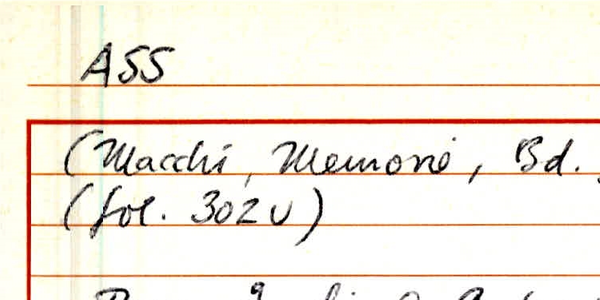 ASS
(Macchi, Memorie, Bd.
(fol. 302v)